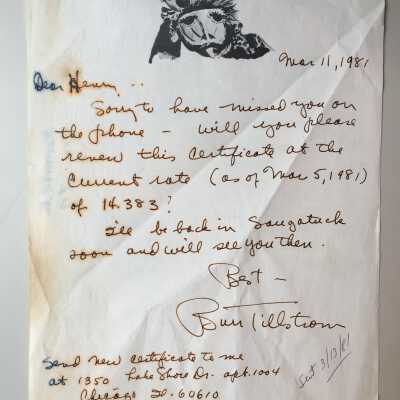 Mar 11, 1981
Dear Henry --
Sorry to have missed you on
the phone - will you please
renew this certificate at the
current rate (as of Mar 5, 1981)
of 14.383?
I'll be back in Saugatuck
soon and will see you then.
Best -
Burr Tillstrom
Send new certificate to me
at 1350 Lake Shore Dr. apt. 1004
Chicago Il. 60610
Sent 3/13/81